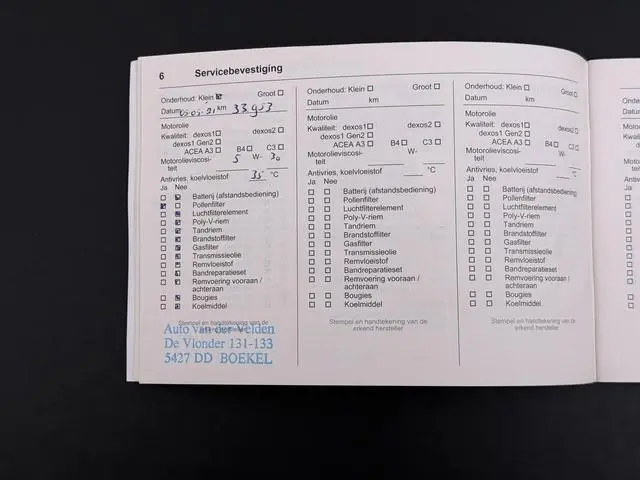 6 Servicebevestiging
Onderhoud: Klein Groot
Datum km
Motorolie
Kwaliteit: dexos1 dexos2
dexos1 Gen2
ACEA A3 B4 C3
Motorolieviscosi- 5 W- 30
teit
Antivries, koelvloeistof 35 °C
Ja Nee
Batterij (afstandsbediening)
Pollenfilter
Luchtfilterelement
Poly-V-riem
Tandriem
Brandstoffilter
Gasfilter
Transmissieolie
Remvloeistof
Bandreparatieset
Remvoering vooraan /
achteraan
Bougies
Koelmiddel
Stempel en handtekening van de
erkend hersteller
Auto van der Velden
De Vlonder 131-133
5427 DD BOEKEL
Onderhoud: Klein Groot
Datum km
Motorolie
Kwaliteit: dexos1 dexos2
dexos1 Gen2
ACEA A3 B4 C3
Motorolieviscosi- W-
teit
Antivries, koelvloeistof °C
Ja Nee
Batterij (afstandsbediening)
Pollenfilter
Luchtfilterelement
Poly-V-riem
Tandriem
Brandstoffilter
Gasfilter
Transmissieolie
Remvloeistof
Bandreparatieset
Remvoering vooraan /
achteraan
Bougies
Koelmiddel
Stempel en handtekening van de
erkend hersteller
Onderhoud: Klein Groot
Datum km
Motorolie
Kwaliteit: dexos1 dexos2
dexos1 Gen2
ACEA A3 B4 C3
Motorolieviscosi- W-
teit
Antivries, koelvloeistof °C
Ja Nee
Batterij (afstandsbediening)
Pollenfilter
Luchtfilterelement
Poly-V-riem
Tandriem
Brandstoffilter
Gasfilter
Transmissieolie
Remvloeistof
Bandreparatieset
Remvoering vooraan /
achteraan
Bougies
Koelmiddel
Stempel en handtekening van de
erkend hersteller